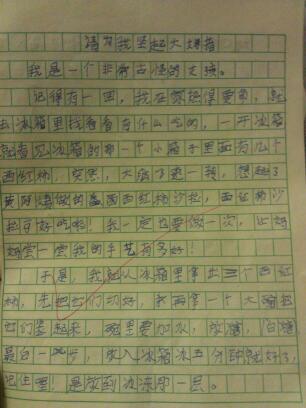 请为我竖起大拇指
我是一个非常古怪的女孩。
记得有一回，我在家热得要命，就
去冰箱里找看看有什么吃的，一开冰箱
就看见冰箱的那一个小箱子里面有几个
西红柿，突然，大脑了来一转，想起了
阿姨做的西红柿沙拉，西红柿沙
拉可好吃啦！我一定也要做一次，让妈
妈尝一尝我的手艺有多好！
于是，我就从冰箱里拿出三个西红
柿，先把它们切好，我再拿一个大碗把
它们装起来，碗里要加水，放糖，白糖
最白一点少，放入冰箱冰五分钟就好了，
记住哩！是放到冰冻那一层。